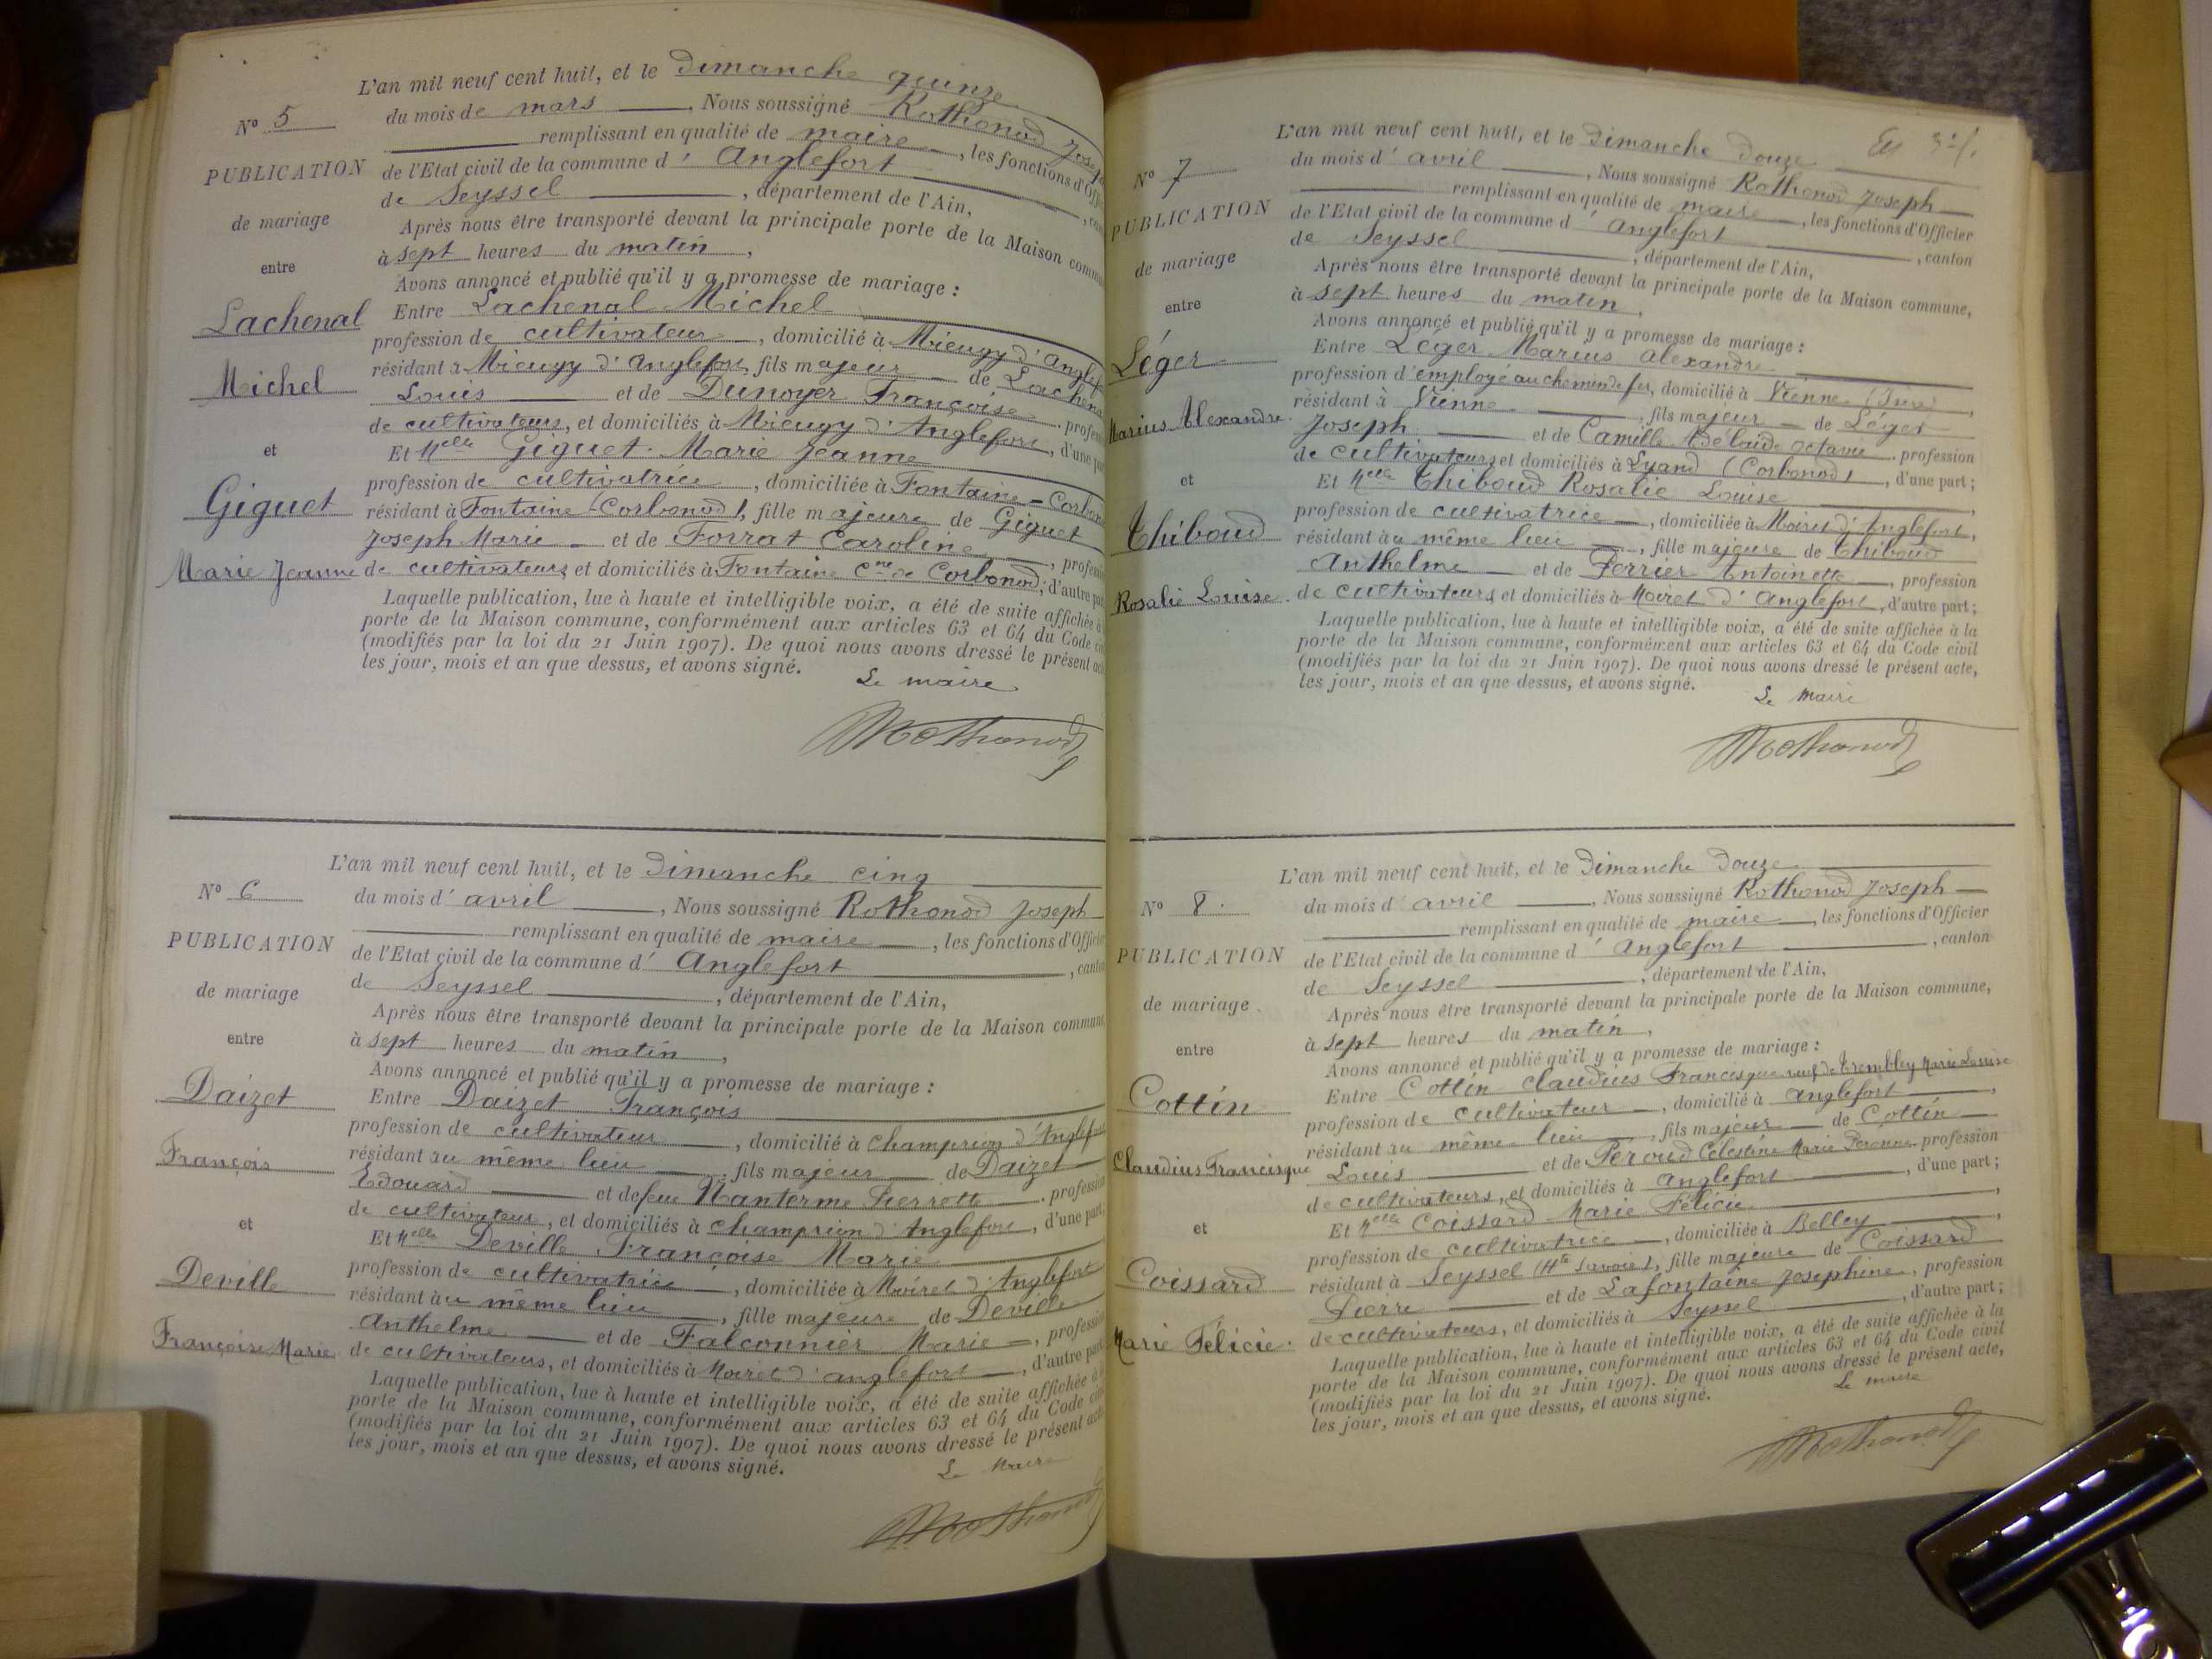 L'an mil neuf cent huit, et le Dimanche quinze
N° 5
du mois de mars, Nous soussigné Rothonod Joseph
remplissant en qualité de maire, les fonctions d'Offi
PUBLICATION
de l'Etat civil de la commune d' Anglefort
de Seyssel, département de l'Ain,
de mariage
Après nous être transporté devant la principale porte de la Maison commu
à sept heures du matin,
entre
Avons annoncé et publié qu'il y a promesse de mariage :
Lachenal
Entre Lachenal Michel
profession de cultivateur, domicilié à Mieugy d'Anglef
résidant à Mieugy d'Anglefort, fils majeur de Lachena
Michel
Louis et de Dunoyer Françoise, profes
de cultivateurs, et domiciliés à Mieugy d'Anglefort, d'une pa
et
Et Melle Giguet Marie Jeanne
profession de cultivatrice, domiciliée à Fontaine - Corbon
Giguet
résidant à Fontaine (Corbonod), fille majeure de Giguet
Joseph Marie et de Forrat Caroline, profes
Marie Jeanne
de cultivateurs, et domiciliés à Fontaine Cne de Corbonod; d'autre pa
Laquelle publication, lue à haute et intelligible voix, a été de suite affichée à
porte de la Maison commune, conformément aux articles 63 et 64 du Code ci
(modifiés par la loi du 21 Juin 1907). De quoi nous avons dressé le présent ac
les jour, mois et an que dessus, et avons signé.
Le maire
Rothonod
L'an mil neuf cent huit, et le Dimanche cinq
N° 6
du mois d' avril, Nous soussigné Rothonod Joseph
remplissant en qualité de maire, les fonctions d'Officier
PUBLICATION
de l'Etat civil de la commune d' Anglefort, canton
de Seyssel, département de l'Ain,
de mariage
Après nous être transporté devant la principale porte de la Maison commune,
entre
à sept heures du matin,
Avons annoncé et publié qu'il y a promesse de mariage :
Daizet
Entre Daizet François
profession de cultivateur, domicilié à Champrion d'Anglefort
François
résidant au même lieu, fils majeur de Daizet
Edouard et de feue Nanterme Pierrette, profession
de cultivateur, et domiciliés à Champrion d'Anglefort, d'une part;
et
Et Melle Deville Françoise Marie
profession de cultivatrice, domiciliée à Moiret d'Anglefort
Deville
résidant au même lieu, fille majeure de Deville
Anthelme et de Falconnier Marie, profession
Françoise Marie
de cultivateurs, et domiciliés à Moiret d'Anglefort, d'autre part
Laquelle publication, lue à haute et intelligible voix, a été de suite affichée à
porte de la Maison commune, conformément aux articles 63 et 64 du Code ci
(modifiés par la loi du 21 Juin 1907). De quoi nous avons dressé le présent acte
les jour, mois et an que dessus, et avons signé.
Le Maire
Rothonod
L'an mil neuf cent huit, et le Dimanche Douze
N° 7
du mois d' avril, Nous soussigné Rothonod Joseph
remplissant en qualité de maire, les fonctions d'Officier
PUBLICATION
de l'Etat civil de la commune d' Anglefort, canton
de Seyssel, département de l'Ain,
de mariage
Après nous être transporté devant la principale porte de la Maison commune,
à sept heures du matin,
entre
Avons annoncé et publié qu'il y a promesse de mariage :
Léger
Entre Léger Marius Alexandre
profession d'employé au chemin de fer, domicilié à Vienne (Isère),
résidant à Vienne, fils majeur de Léger
Marius Alexandre
Joseph et de Camille Adélaïde Octavie, profession
de cultivateurs, et domiciliés à Lyand (Corbonod), d'une part;
et
Et Melle Thiboud Rosalie Louise
profession de cultivatrice, domiciliée à Moiret d'Anglefort,
Thiboud
résidant au même lieu, fille majeure de Thiboud
Anthelme et de Perrier Antoinette, profession
Rosalie Louise
de cultivateurs, et domiciliés à Moiret d'Anglefort, d'autre part;
Laquelle publication, lue à haute et intelligible voix, a été de suite affichée à la
porte de la Maison commune, conformément aux articles 63 et 64 du Code civil
(modifiés par la loi du 21 Juin 1907). De quoi nous avons dressé le présent acte,
les jour, mois et an que dessus, et avons signé.
Le Maire
Rothonod
L'an mil neuf cent huit, et le Dimanche Douze
N° 8.
du mois d' avril, Nous soussigné Rothonod Joseph
remplissant en qualité de maire, les fonctions d'Officier
PUBLICATION
de l'Etat civil de la commune d' Anglefort, canton
de Seyssel, département de l'Ain,
de mariage
Après nous être transporté devant la principale porte de la Maison commune,
à sept heures du matin,
entre
Avons annoncé et publié qu'il y a promesse de mariage :
Cottin
Entre Cottin Claudius Francisque veuf de Trembley Marie Louise
profession de cultivateur, domicilié à Anglefort,
résidant au même lieu, fils majeur de Cottin
Claudius Francisque
Louis et de Peroud Célestine Marie Peronne, profession
de cultivateurs, et domiciliés à Anglefort, d'une part;
et
Et Melle Coissard Marie Félicie,
profession de cultivatrice, domiciliée à Belley,
Coissard
résidant à Seyssel (Hte Savoie), fille majeure de Coissard
Pierre et de Lafontaine Josephine, profession
Marie Félicie.
de cultivateurs, et domiciliés à Seyssel, d'autre part;
Laquelle publication, lue à haute et intelligible voix, a été de suite affichée à la
porte de la Maison commune, conformément aux articles 63 et 64 du Code civil
(modifiés par la loi du 21 Juin 1907). De quoi nous avons dressé le présent acte,
les jour, mois et an que dessus, et avons signé.
Le maire
Rothonod